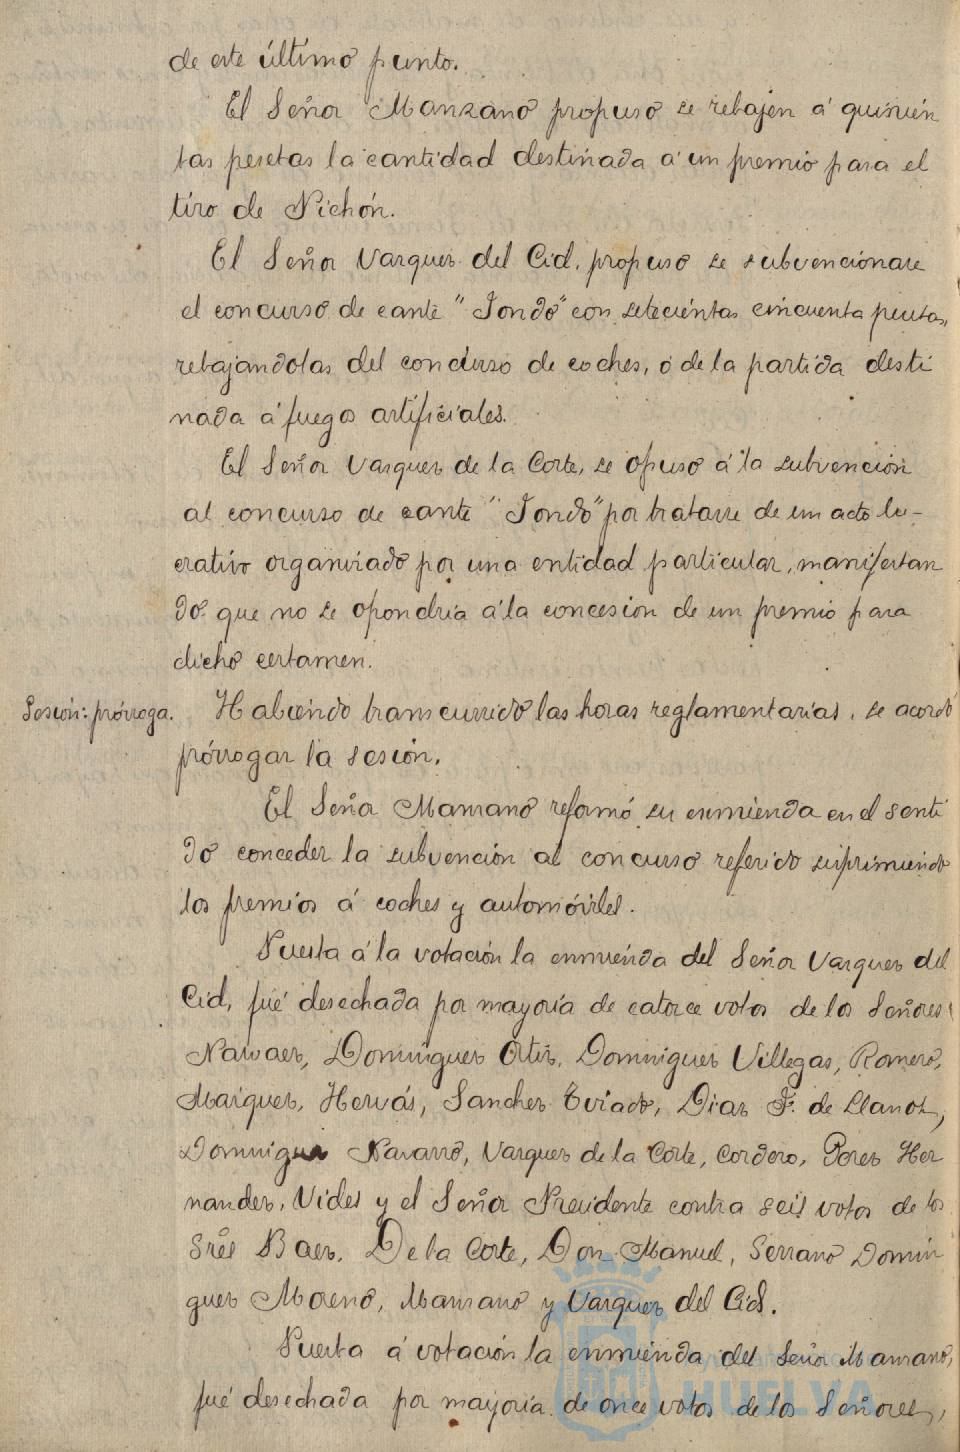 de este último punto.
El Señor Manzano propuso se rebajen á quinien
tas pesetas la cantidad destinada á un premio para el
tiro de Pichón.
El Señor Vazquez del Cid, propuso se subvencionare
el concurso de cante "Jondo" con setecientas cincuenta pesetas,
rebajandolas del concurso de coches, ó de la partida desti
nada á fuegos artificiales.
El Señor Vazquez de la Corte, se opuso á la subvención
al concurso de cante "Jondo" por tratarse de un acto lu-
crativo organizado por una entidad particular, manifestan
do que no se opondría á la concesion de un premio para
dicho certamen.
Sesión: prórroga.
Habciendo transcurrido las horas reglamentarias, se acordó
prórrogar la sesión.
El Señor Manzano reformó su enmienda en el senti
do conceder la subvención al concurso referido suprimiendo
los premios á coches y automóviles.
Puesta á la votación la enmienda del Señor Vazquez del
Cid, fué desechada por mayoría de catorce votos de los Señores
Narvaez, Dominguez Ortiz, Dominguez Villegas, Romero,
Marquez, Hervás, Sanchez Tviado, Diaz F. de Llanos,
Dominguez Navarro, Vazquez de la Corte, Cordero, Perez Her
nandez, Vides y el Señor Presidente contra seis votos de los
Srés Baez, De la Corte, Don Manuel, Serrano Domin
guez Moreno, Manzano y Vazquez del Cid.
Puesta á votación la enmienda del Señor Manzano,
fué desechada por mayoría de once votos de los Señores,
Ayuntamiento de
HUELVA